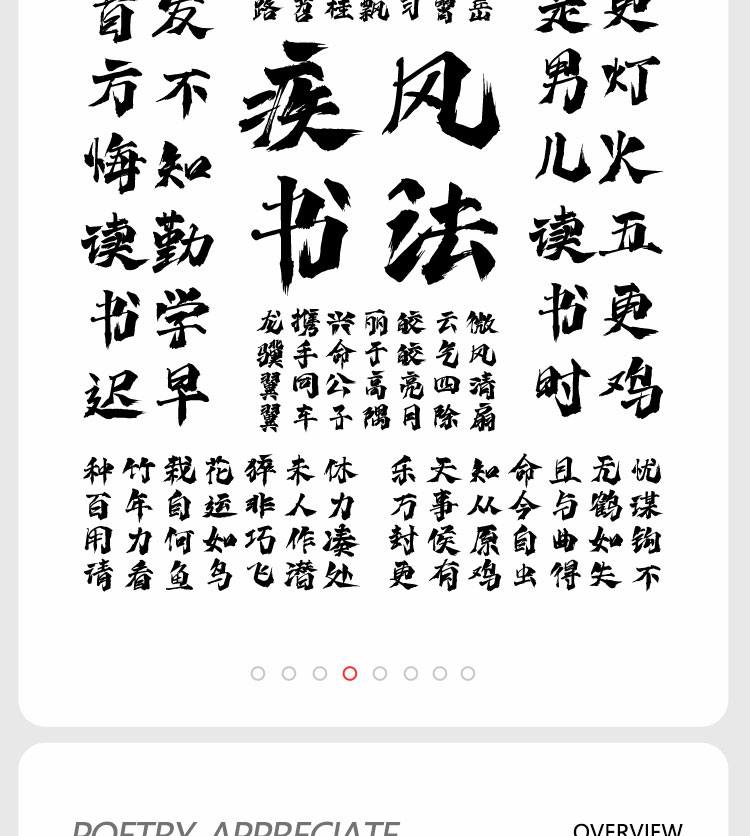 更灯火五更鸡
是男儿读书时
疾风
书法
微风清扇
云气四除
皎皎亮月
丽于高隅
兴命公子
携手同车
龙骥翼翼
发不知勤学早
首方悔读书迟
种竹栽花猝未休
百年自运非人力
用力何如巧作凑
请看鱼鸟飞潜处
乐天知命且无忧
万事从今与鹤谋
封侯原自曲如钩
更有鸡虫得失不
POETRY APPRECIATE
OVERVIEW